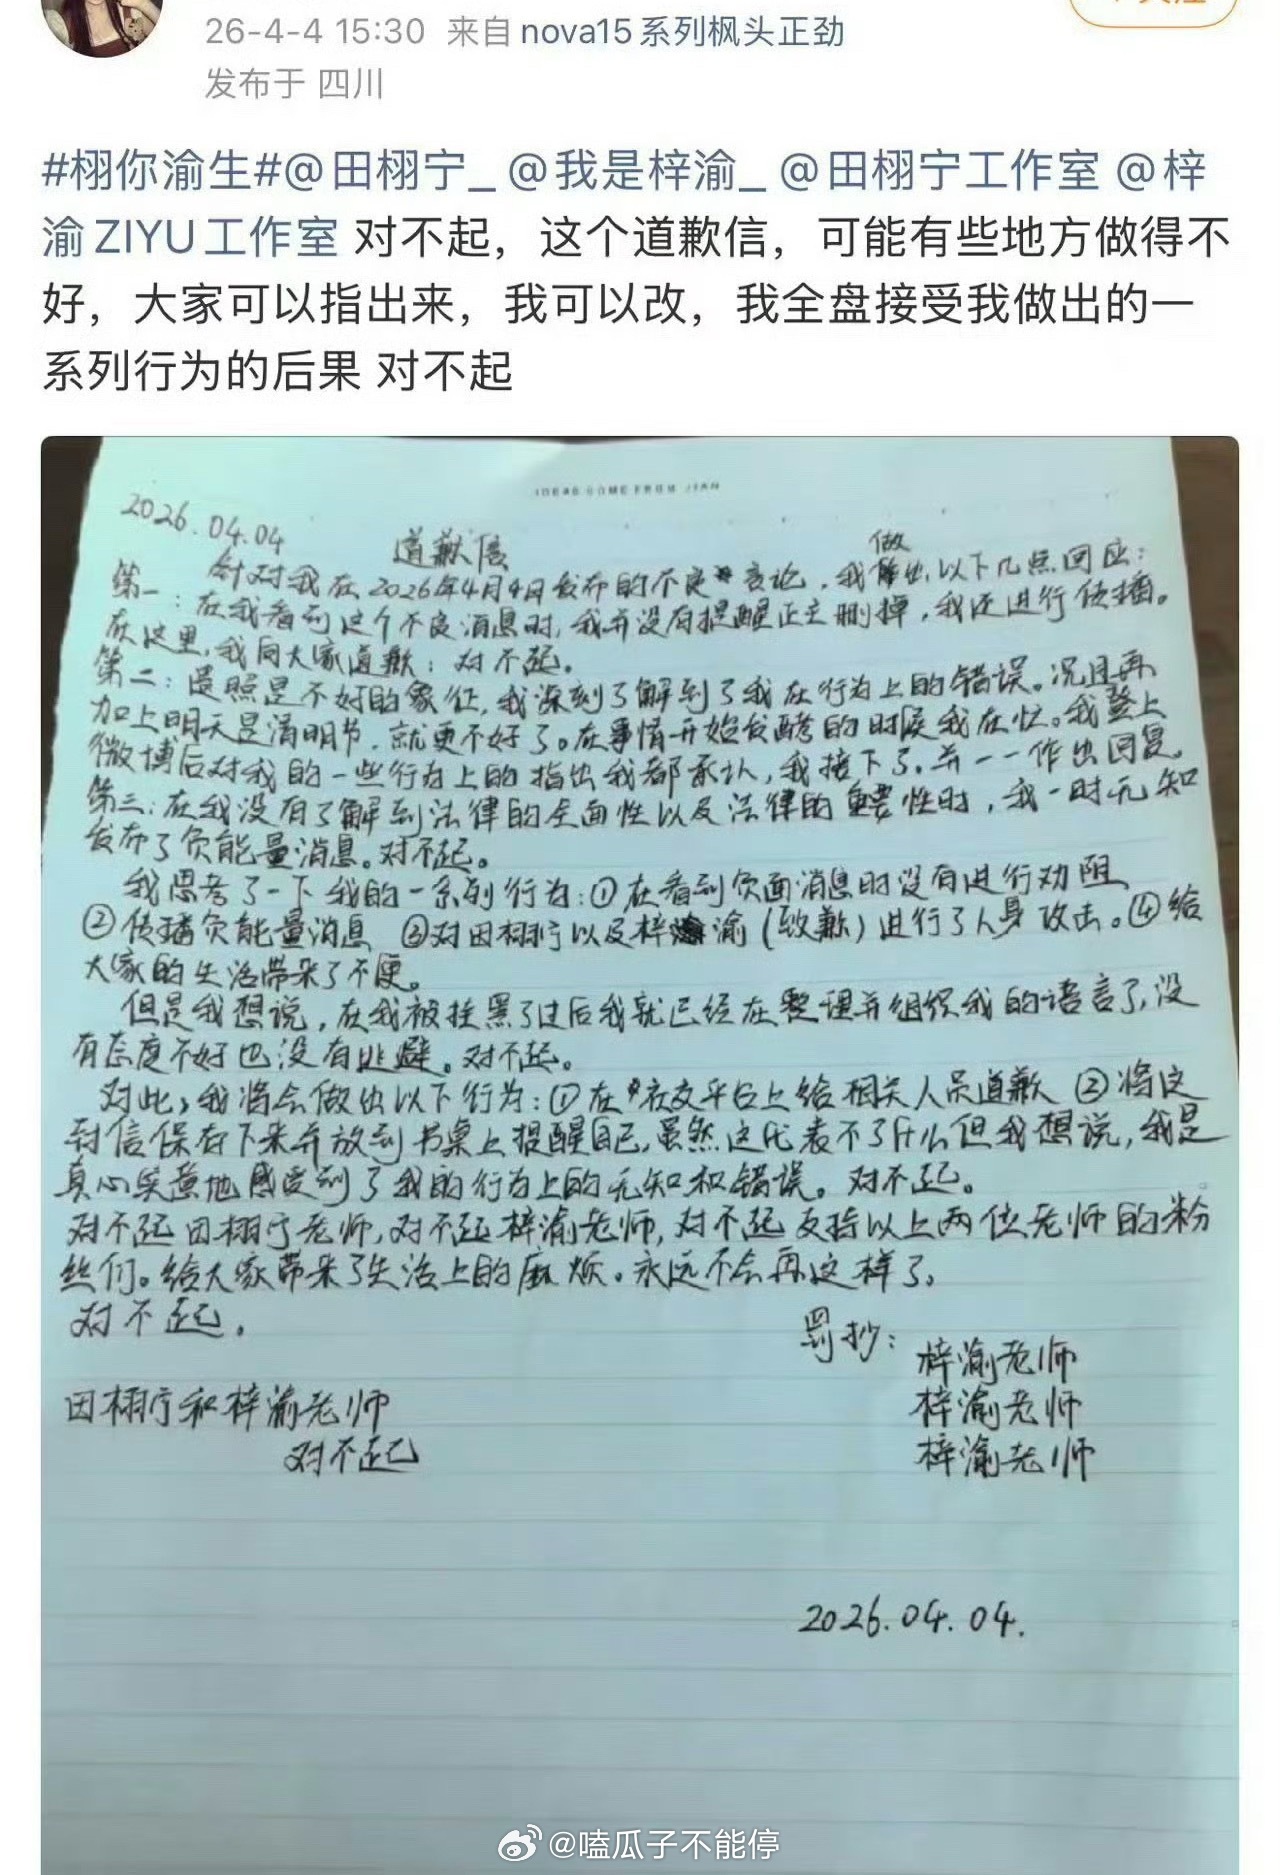 26-4-4 15:30 来自 nova15系列枫头正劲
发布于 四川
#栩你渝生#@田栩宁_ @我是梓渝_ @田栩宁工作室 @梓
渝ZIYU工作室 对不起，这个道歉信，可能有些地方做得不
好，大家可以指出来，我可以改，我全盘接受我做出的一
系列行为的后果 对不起
IDEAS COME FROM
2026.04.04
道歉信
做
针对我在2026年4月4日发布的不良言论，我出以下几点回应：
第一：在我看到这个不良消息时，我并没有提醒正主删掉，我还进行传播。
在这里，我向大家道歉：对不起。
第二：遗照是不好的象征，我深刻了解到了我在行为上的错误。况且再
加上明天是清明节，就更不好了。在事情开始发酵的时候我在忙。我登上
微博后对我的一些行为上的指出我都承认，我接下了，并一一作出回复。
第三：在我没有了解到法律的全面性以及法律的重要性时，我一时无知
发布了负能量消息。对不起。
我思考了一下我的一系列行为：①在看到负面消息时没有进行劝阻
②传播负能量消息 ③对田栩宁以及梓渝（致歉）进行了人身攻击。④给
大家的生活带来了不便。
但是我想说，在我被挂黑了过后我就已经在整理并组织我的语言了，没
有态度不好也没有逃避。对不起。
对此，我将会做出以下行为：①在社交平台上给相关人员道歉 ②将这
封信保存下来并放到书桌上提醒自己，虽然这代表不了什么但我想说，我是
真心实意地感受到了我的行为上的无知和错误。对不起。
对不起田栩宁老师，对不起梓渝老师，对不起支持以上两位老师的粉
丝们。给大家带来了生活上的麻烦。永远不会再这样了。
对不起。
罚抄：梓渝老师
梓渝老师
梓渝老师
田栩宁和梓渝老师
对不起
2026.04.04.
@嗑瓜子不能停